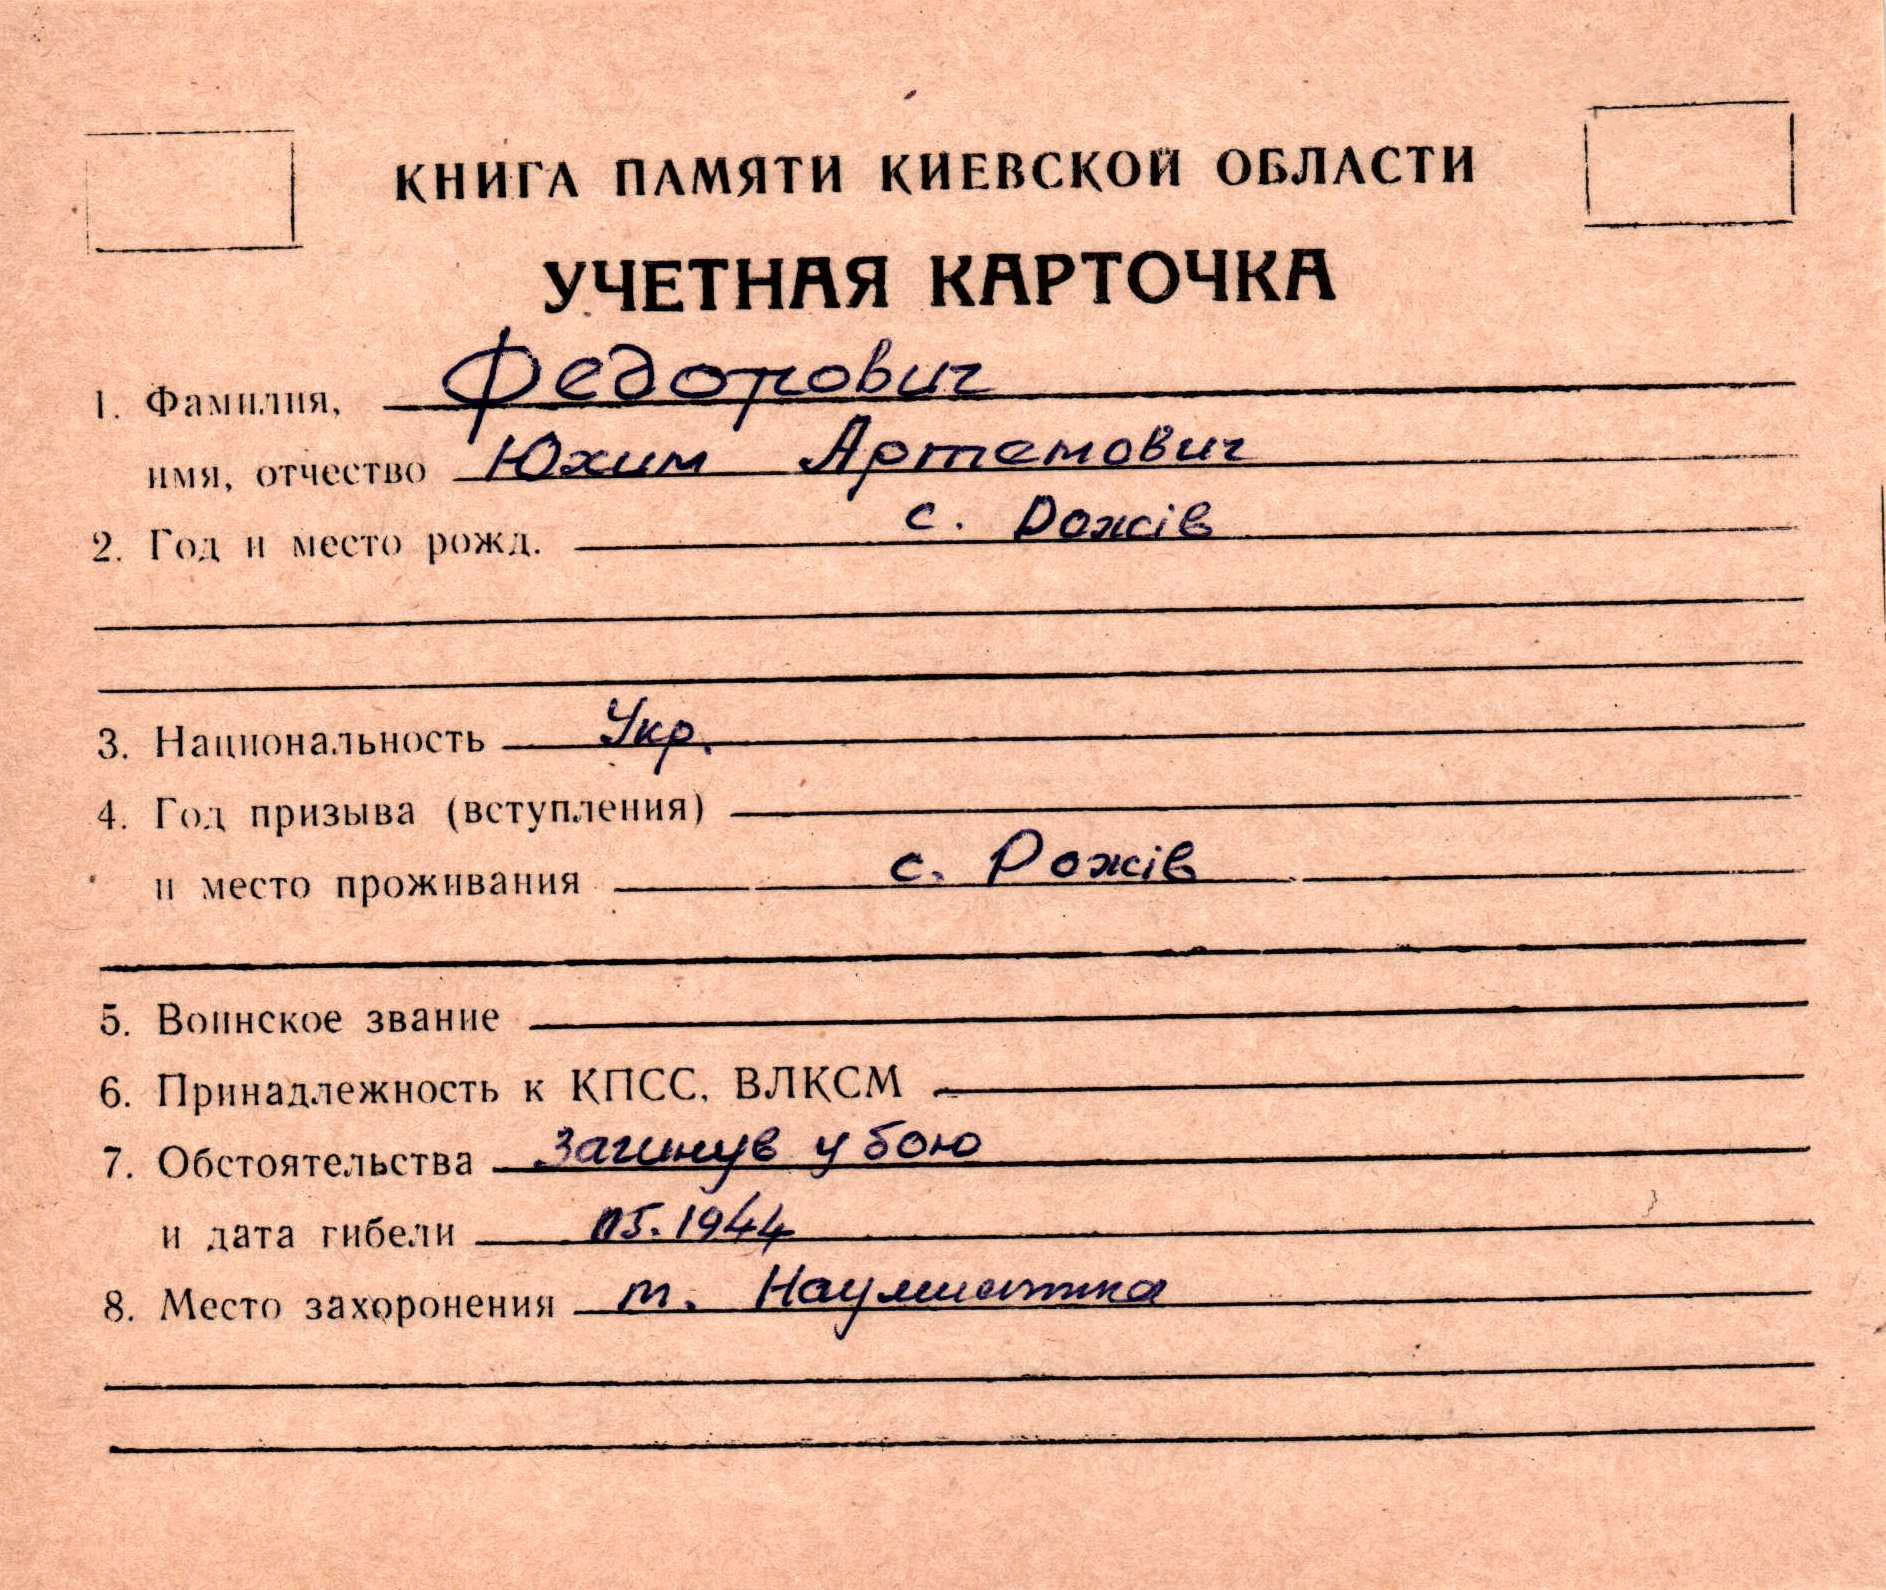 КНИГА ПАМЯТИ КИЕВСКОЙ ОБЛАСТИ
УЧЕТНАЯ КАРТОЧКА
1. Фамилия, Федорович
имя, отчество Юхим Артемович
2. Год и место рожд. с. Рожів
3. Национальность Укр.
4. Год призыва (вступления)
и место проживания с. Рожів
5. Воинское звание
6. Принадлежность к КПСС, ВЛКСМ
7. Обстоятельства Загинув у бою
и дата гибели 05.1944
8. Место захоронения т.